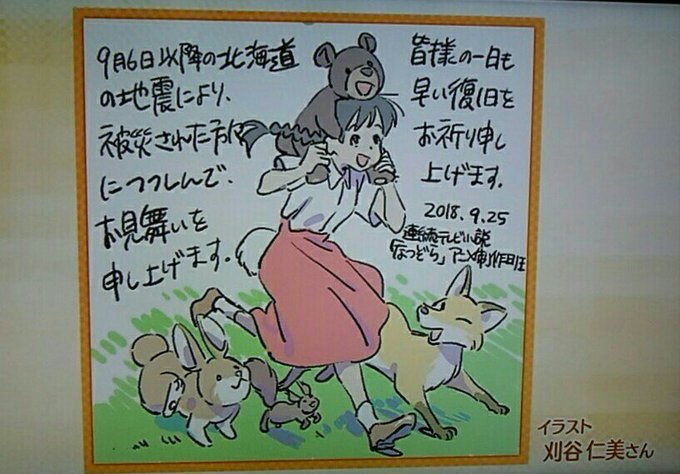 9月6日以降の北海道
の地震により、
被災された方々
につつしんで、
お見舞いを
申し上げます。
皆様の一日も
早い復旧を
お祈り申し
上げます。
2018.9.25
連続テレビ小説
「なつぞら」アニメ制作担任
イラスト
刈谷 仁美さん